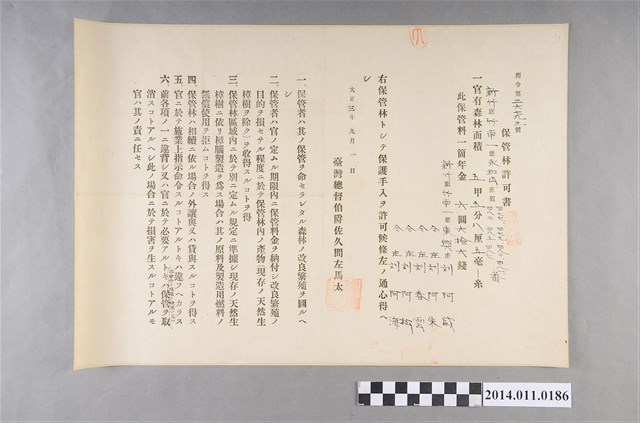 指令第二六九六號
保管林許可書
新竹廳竹南一堡
一官有森林面積 五甲
此保管料一箇年金 六圓六拾六錢
新竹廳竹南一堡
劉阿
仝庄劉阿朱
仝庄劉春雲
仝庄劉阿松
仝庄劉阿海
右保管林トシテ保護手入ヲ許可候條左ノ通心得ヘ
シ
大正三年九月一日
臺灣總督伯爵佐久間左馬太
一 保管者ハ其ノ保管ヲ命セラレタル森林ノ改良繁殖ヲ圖ルヘ
シ
二 保管者ハ官ノ定ムル期限內ニ保管料金ヲ納付シ改良繁殖ノ
目的ヲ損セサル程度ニ於テ保管林內ノ產物(現存ノ天然生
樟樹ヲ除ク)ヲ收得スルコトヲ得
三 保管林區域內ニ於テ別ニ定ムル規定ニ準據シ現存ノ天然生
樟樹ニ依リ樟腦製造ヲ爲ス場合ハ其ノ原料及製造用燃料ノ
無償使用ヲ拒ムコトヲ得ス
四 保管林ハ相續ニ依ル場合ノ外讓與又ハ貸與スルコトヲ得ス
五 官ニ於テ施業上指示命令スルコトアルトキハ違フヘカラス
六 前各項ノ一ニ違背シ又ハ官ニ於テ必要アルトキハ保管ヲ取
消スコトアルヘシ此ノ場合ニ於テ損害ヲ生スルコトアルモ
官ハ其ノ責ニ任セス
2014.011.0186